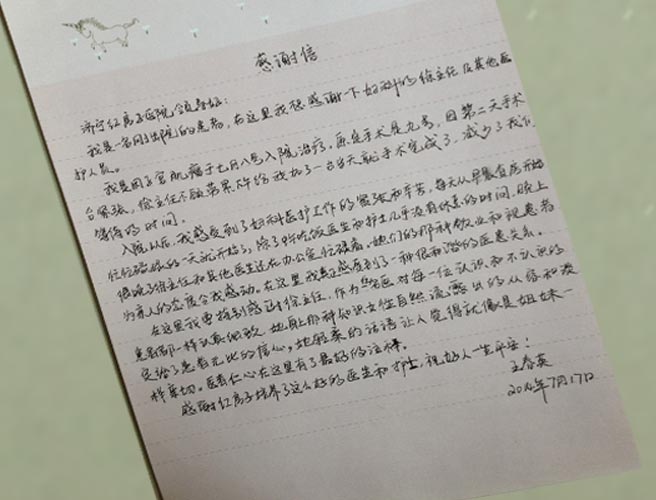 感谢信
济宁红房子医院领导好:
我是一名刚出院的患者,在这里我想感谢一下妇科的徐主任及其他医
护人员。
我是因子宫肌瘤于七月八号入院治疗,原定手术是九号,因第二天手术
台紧张,徐主任不顾劳累又给我加了一台当天就手术完成了,减少了我们
等待的时间。
入院以后,我感受到了妇科医护工作的紧张和辛苦,每天从早晨查房开始
忙忙碌碌的一天就开始了,除了吃饭医生和护士几乎没有休息的时间,晚上
徐主任和其他医生还在办公室忙碌着,她们的那种敬业和视患者
为亲人的态度令我感动。在这里我真正感受到了一种很和谐的医患关系。
在这里我要特别感谢徐主任,作为 对每一位认识和不认识的
患者都一样认真细致,她身上那种知识女性自然流露出的从容和淡
定给了患者无比的信心,她轻柔的话语让人觉得就像是姐妹一
样亲切。医者仁心在这里有了最好的注释。
感谢红房子培养了这么好的医生和护士,祝好人一生平安!
王春英
2014年7月17日